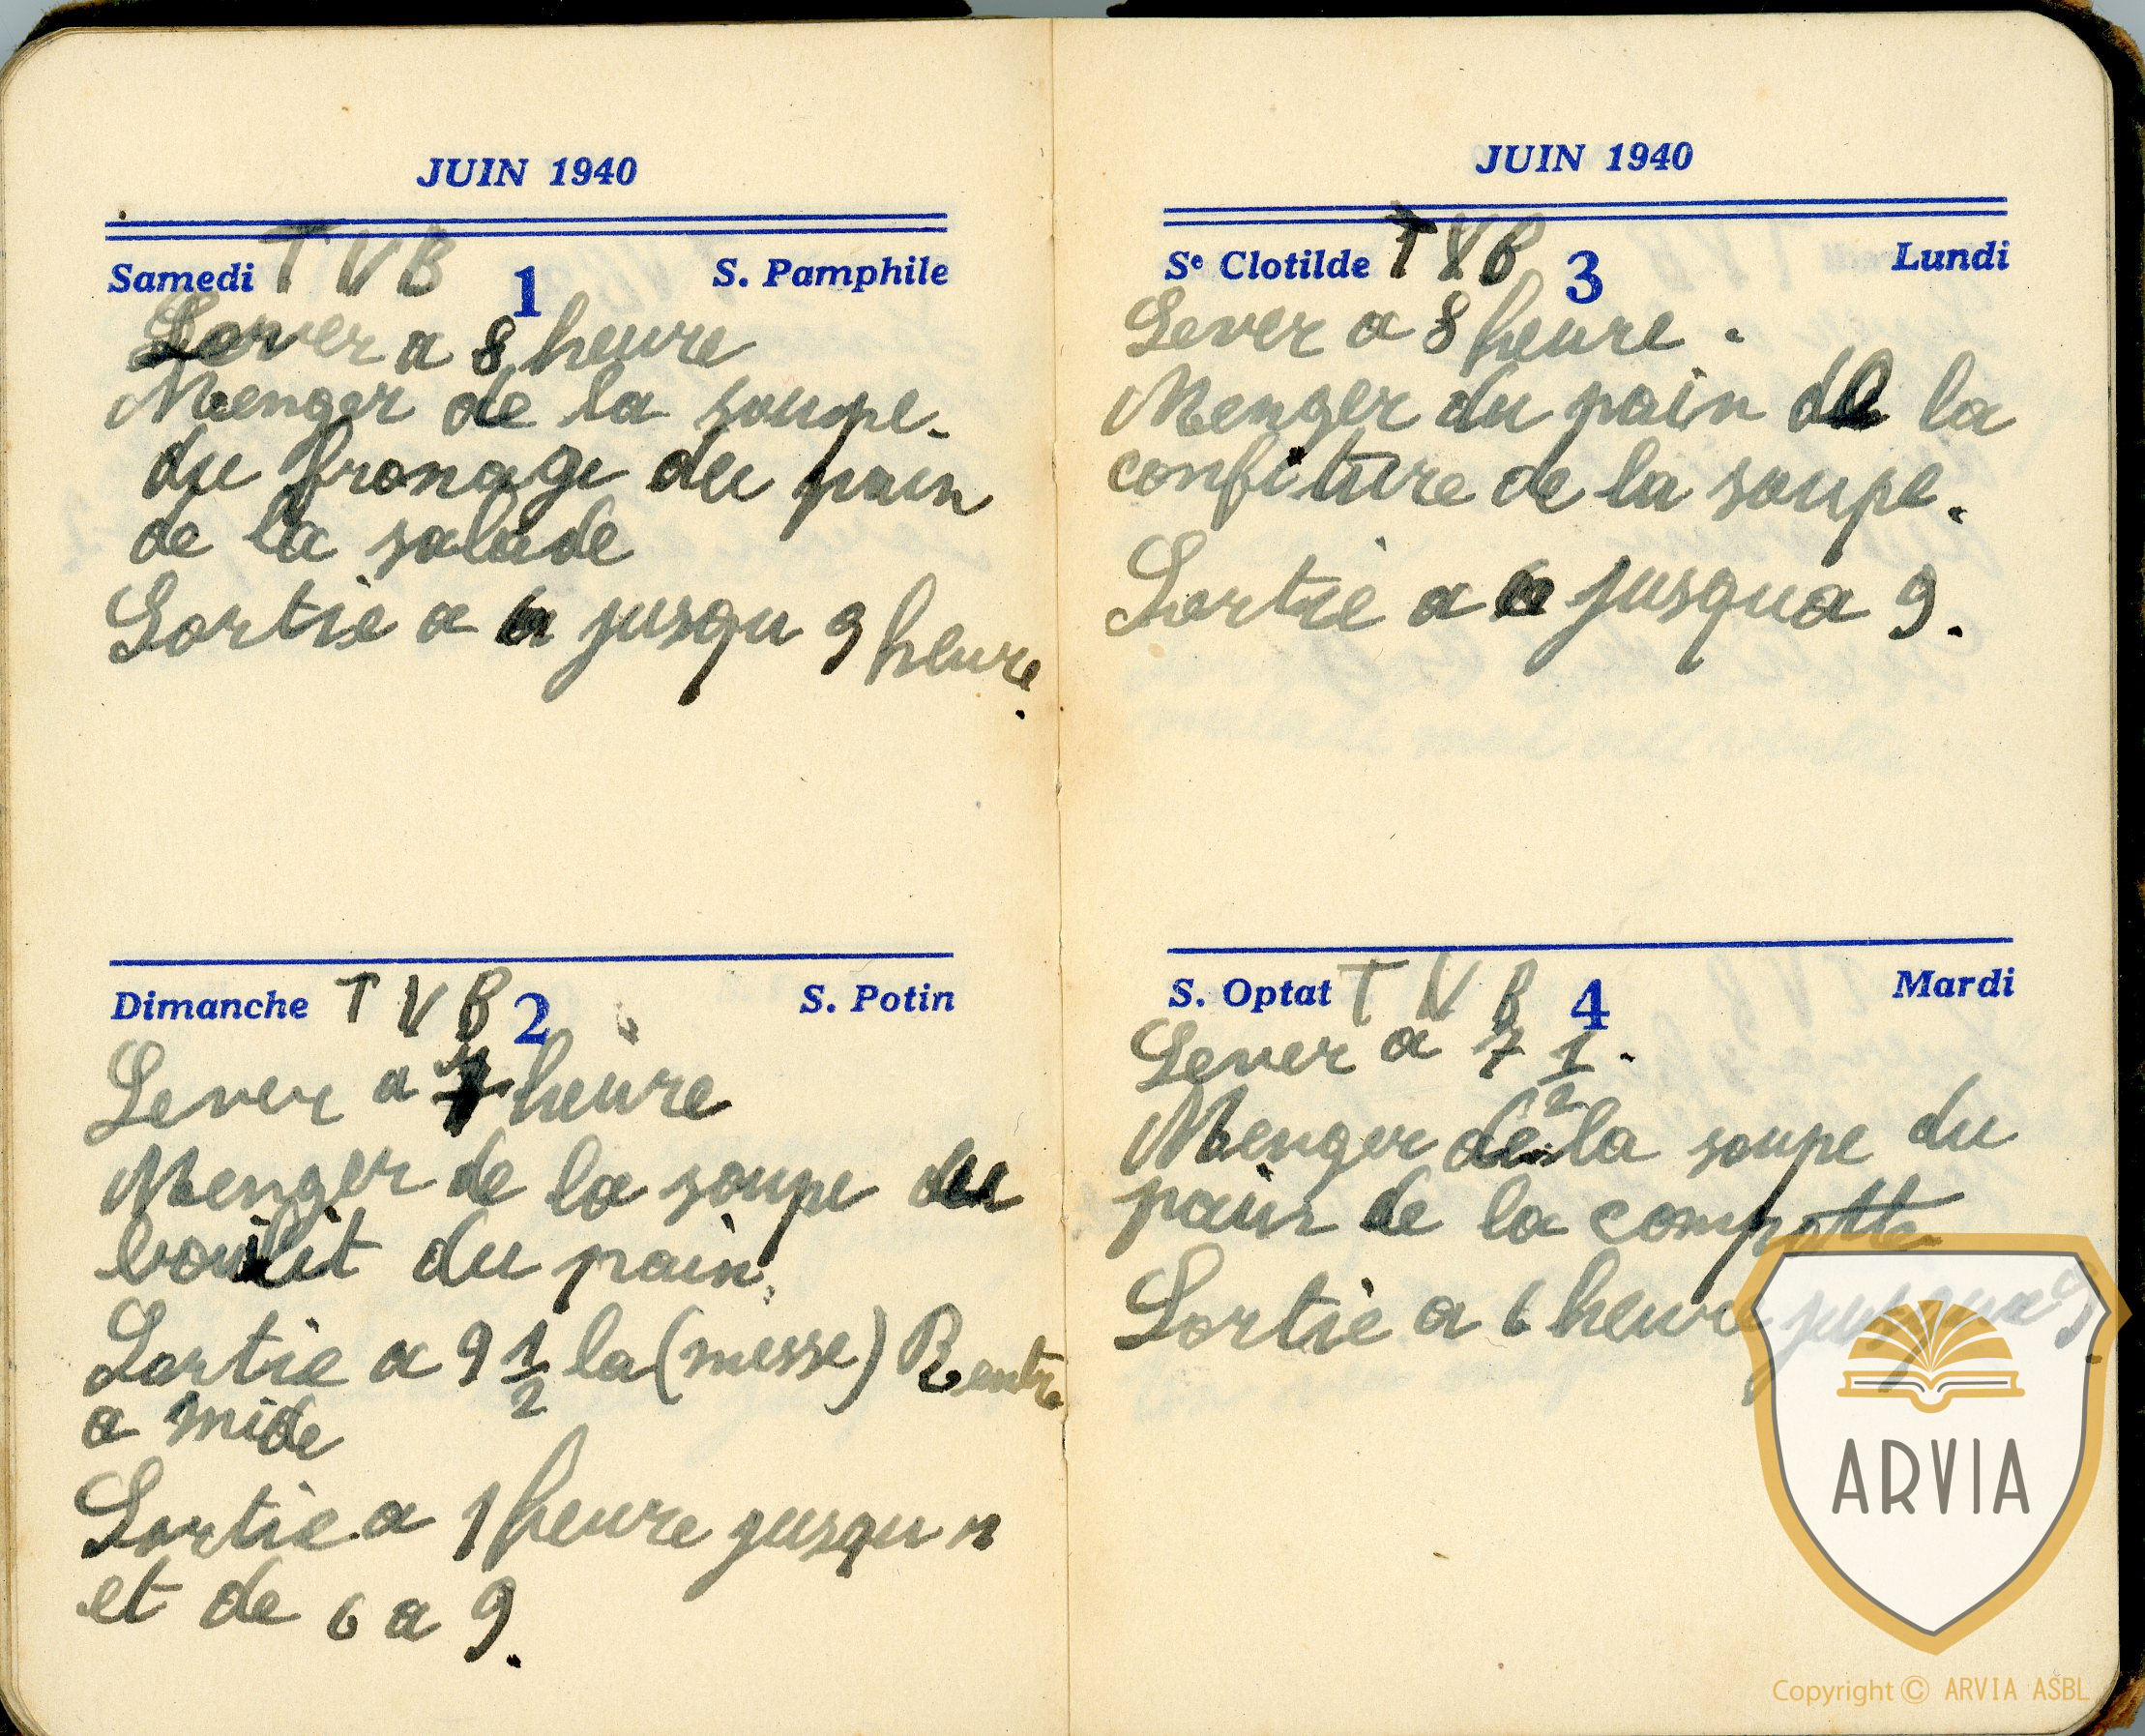 JUIN 1940
Samedi TVB 1 S. Pamphile
Lever a 8 heure
Menger de la soupe.
du fromage du pain
de la salade
Sortie a 6 jusqu 9 heure.
Dimanche TVB 2 S. Potin
Lever a 7 heure
Menger de la soupe du
boulit du pain.
Sortie a 9 1/2 la (messe) Rentre
a mide
Sortie a 1 heure jusqu
et de 6 a 9.
JUIN 1940
Se Clotilde TVB 3 Lundi
Lever a 8 heure.
Menger du pain de la
confiture de la soupe.
Sortie a 6 jusqua 9.
S. Optat TVB 4 Mardi
Lever a 7 1/2.
Menger de la soupe du
pain de la compotte
Sortie a 6 heure jusqua 9.
ARVIA
Copyright © ARVIA ASBL